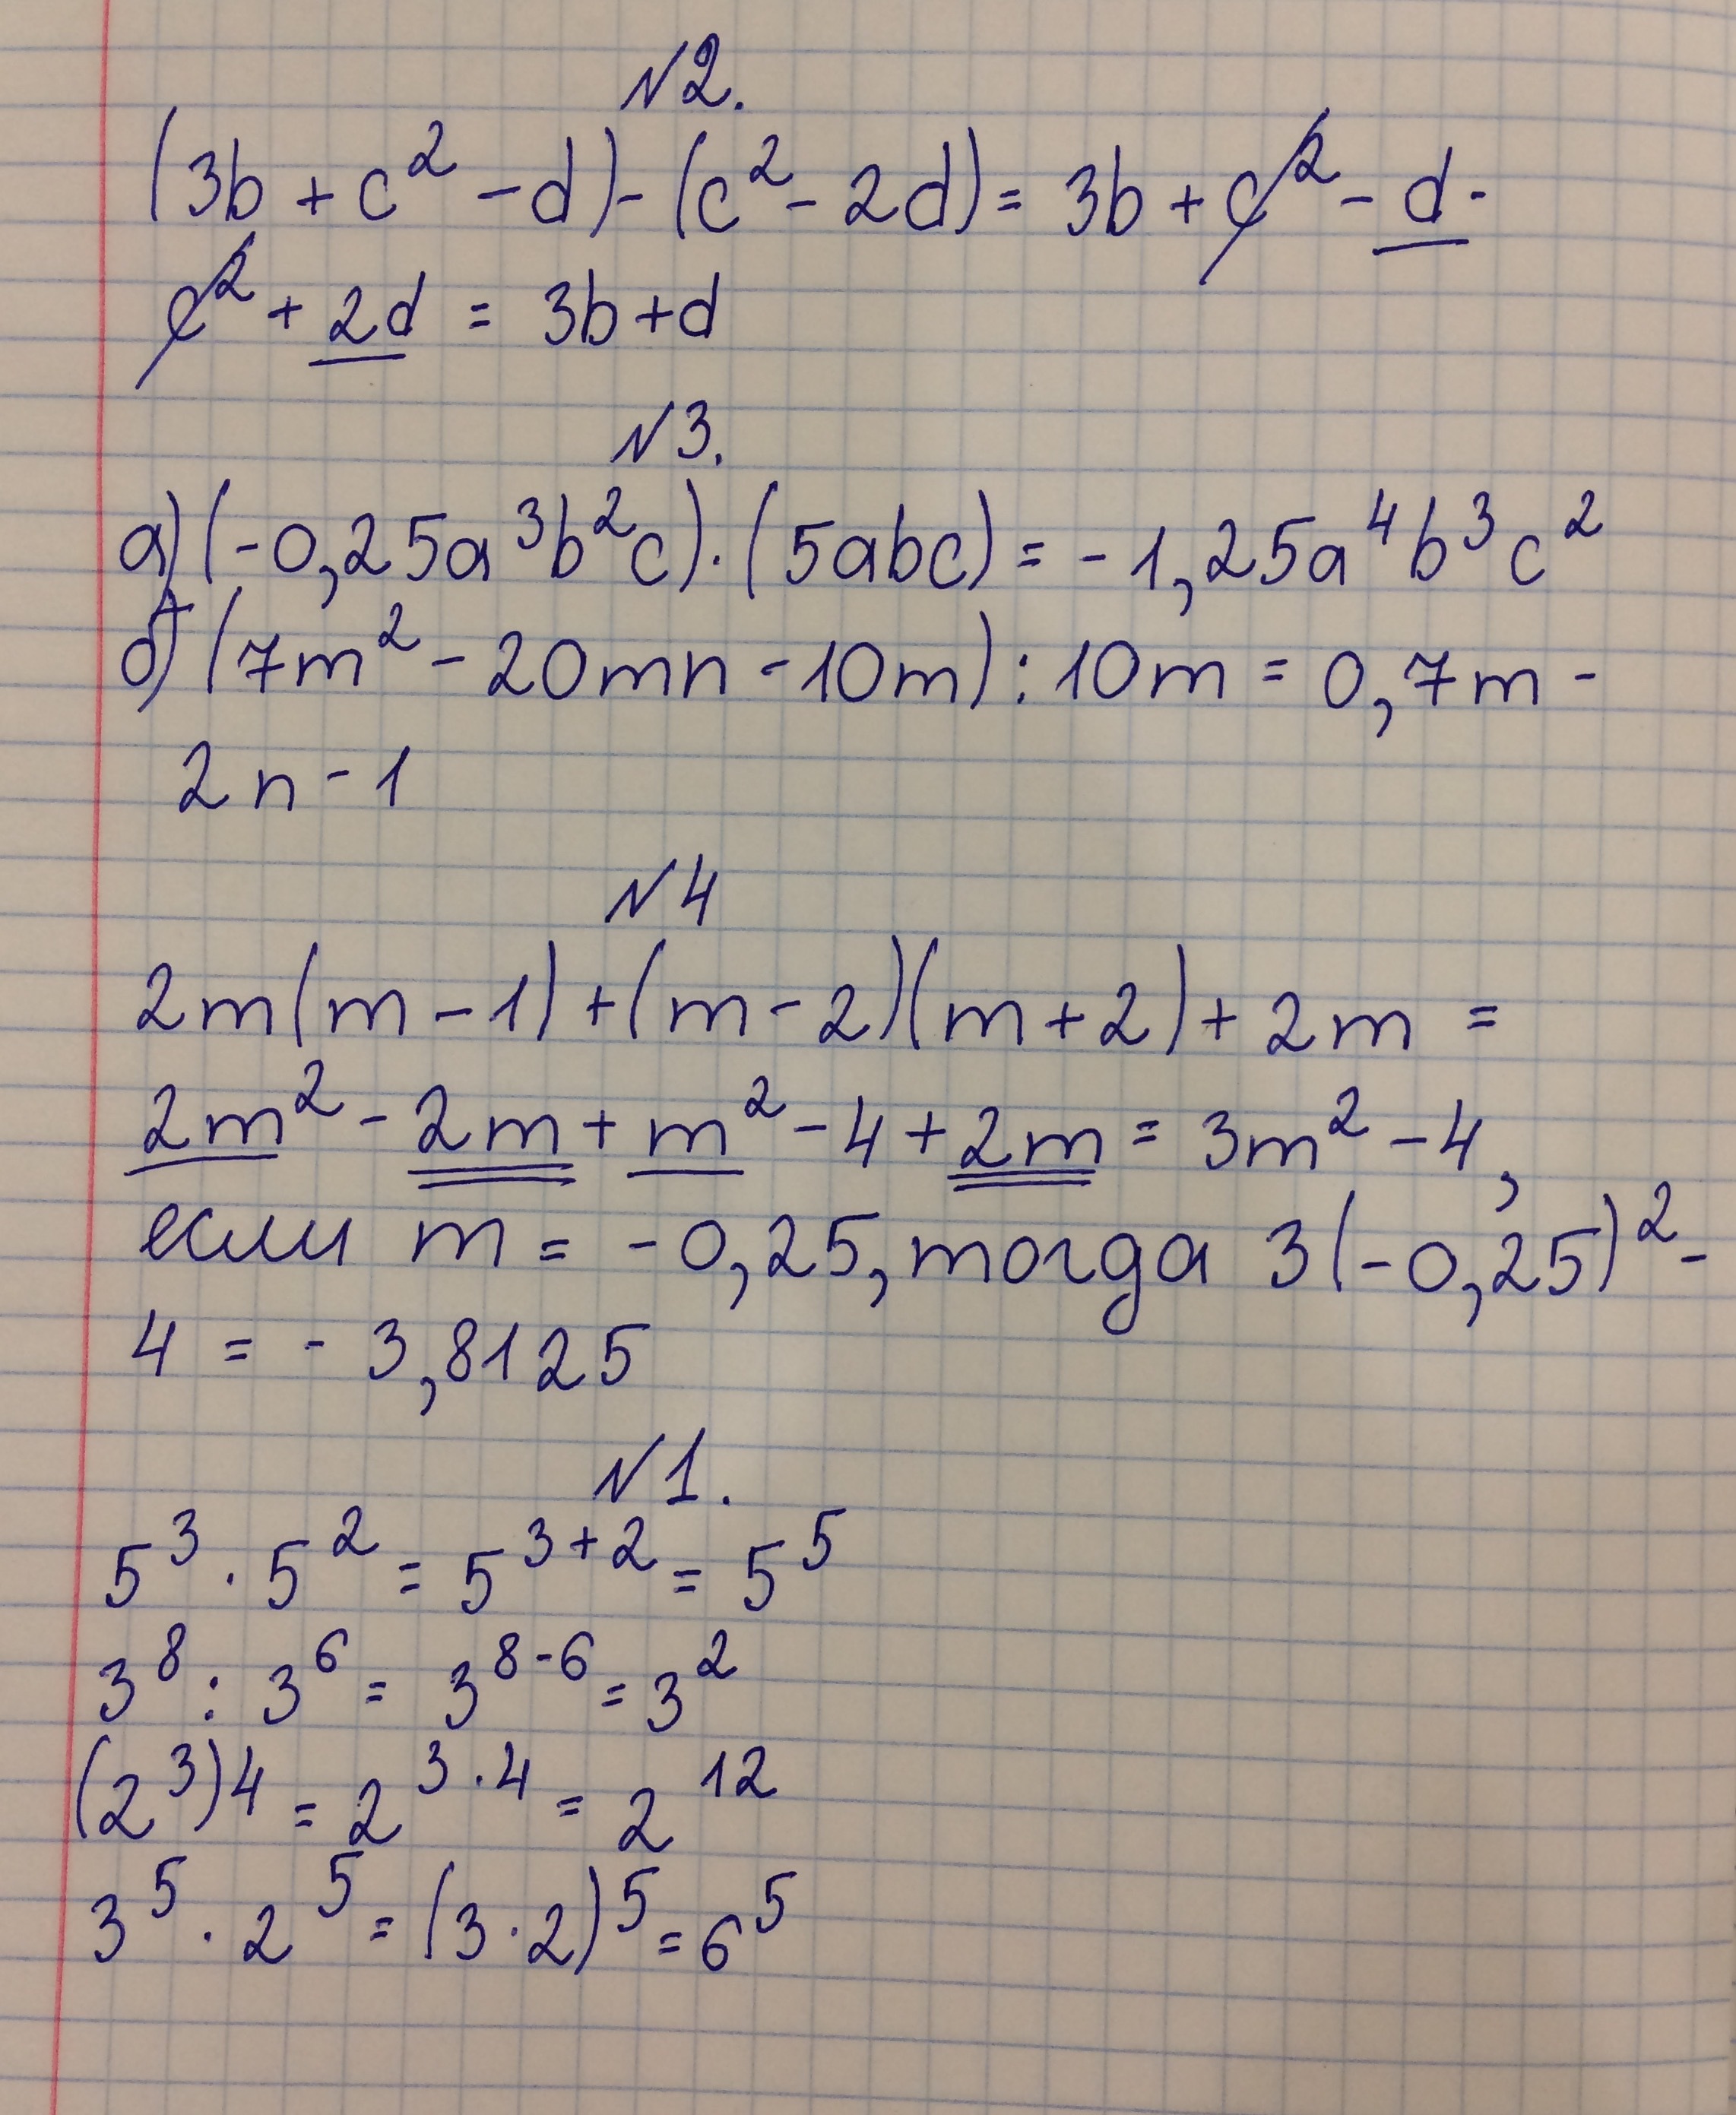 N2.
(3b + c² - d) - (c² - 2d) = 3b + c² - d -
c² + 2d = 3b + d
N3.
а) (-0,25a³b²c) · (5abc) = -1,25a⁴b³c²
б) (7m² - 20mn - 10m) : 10m = 0,7m -
2n - 1
N4
2m(m - 1) + (m - 2)(m + 2) + 2m =
2m² - 2m + m² - 4 + 2m = 3m² - 4,
если m = -0,25, тогда 3(-0,25)² -
4 = - 3,8125
N1.
5³ · 5² = 5³⁺² = 5⁵
3⁸ : 3⁶ = 3⁸⁻⁶ = 3²
(2³)⁴ = 2³·⁴ = 2¹²
3⁵ · 2⁵ = (3 · 2)⁵ = 6⁵